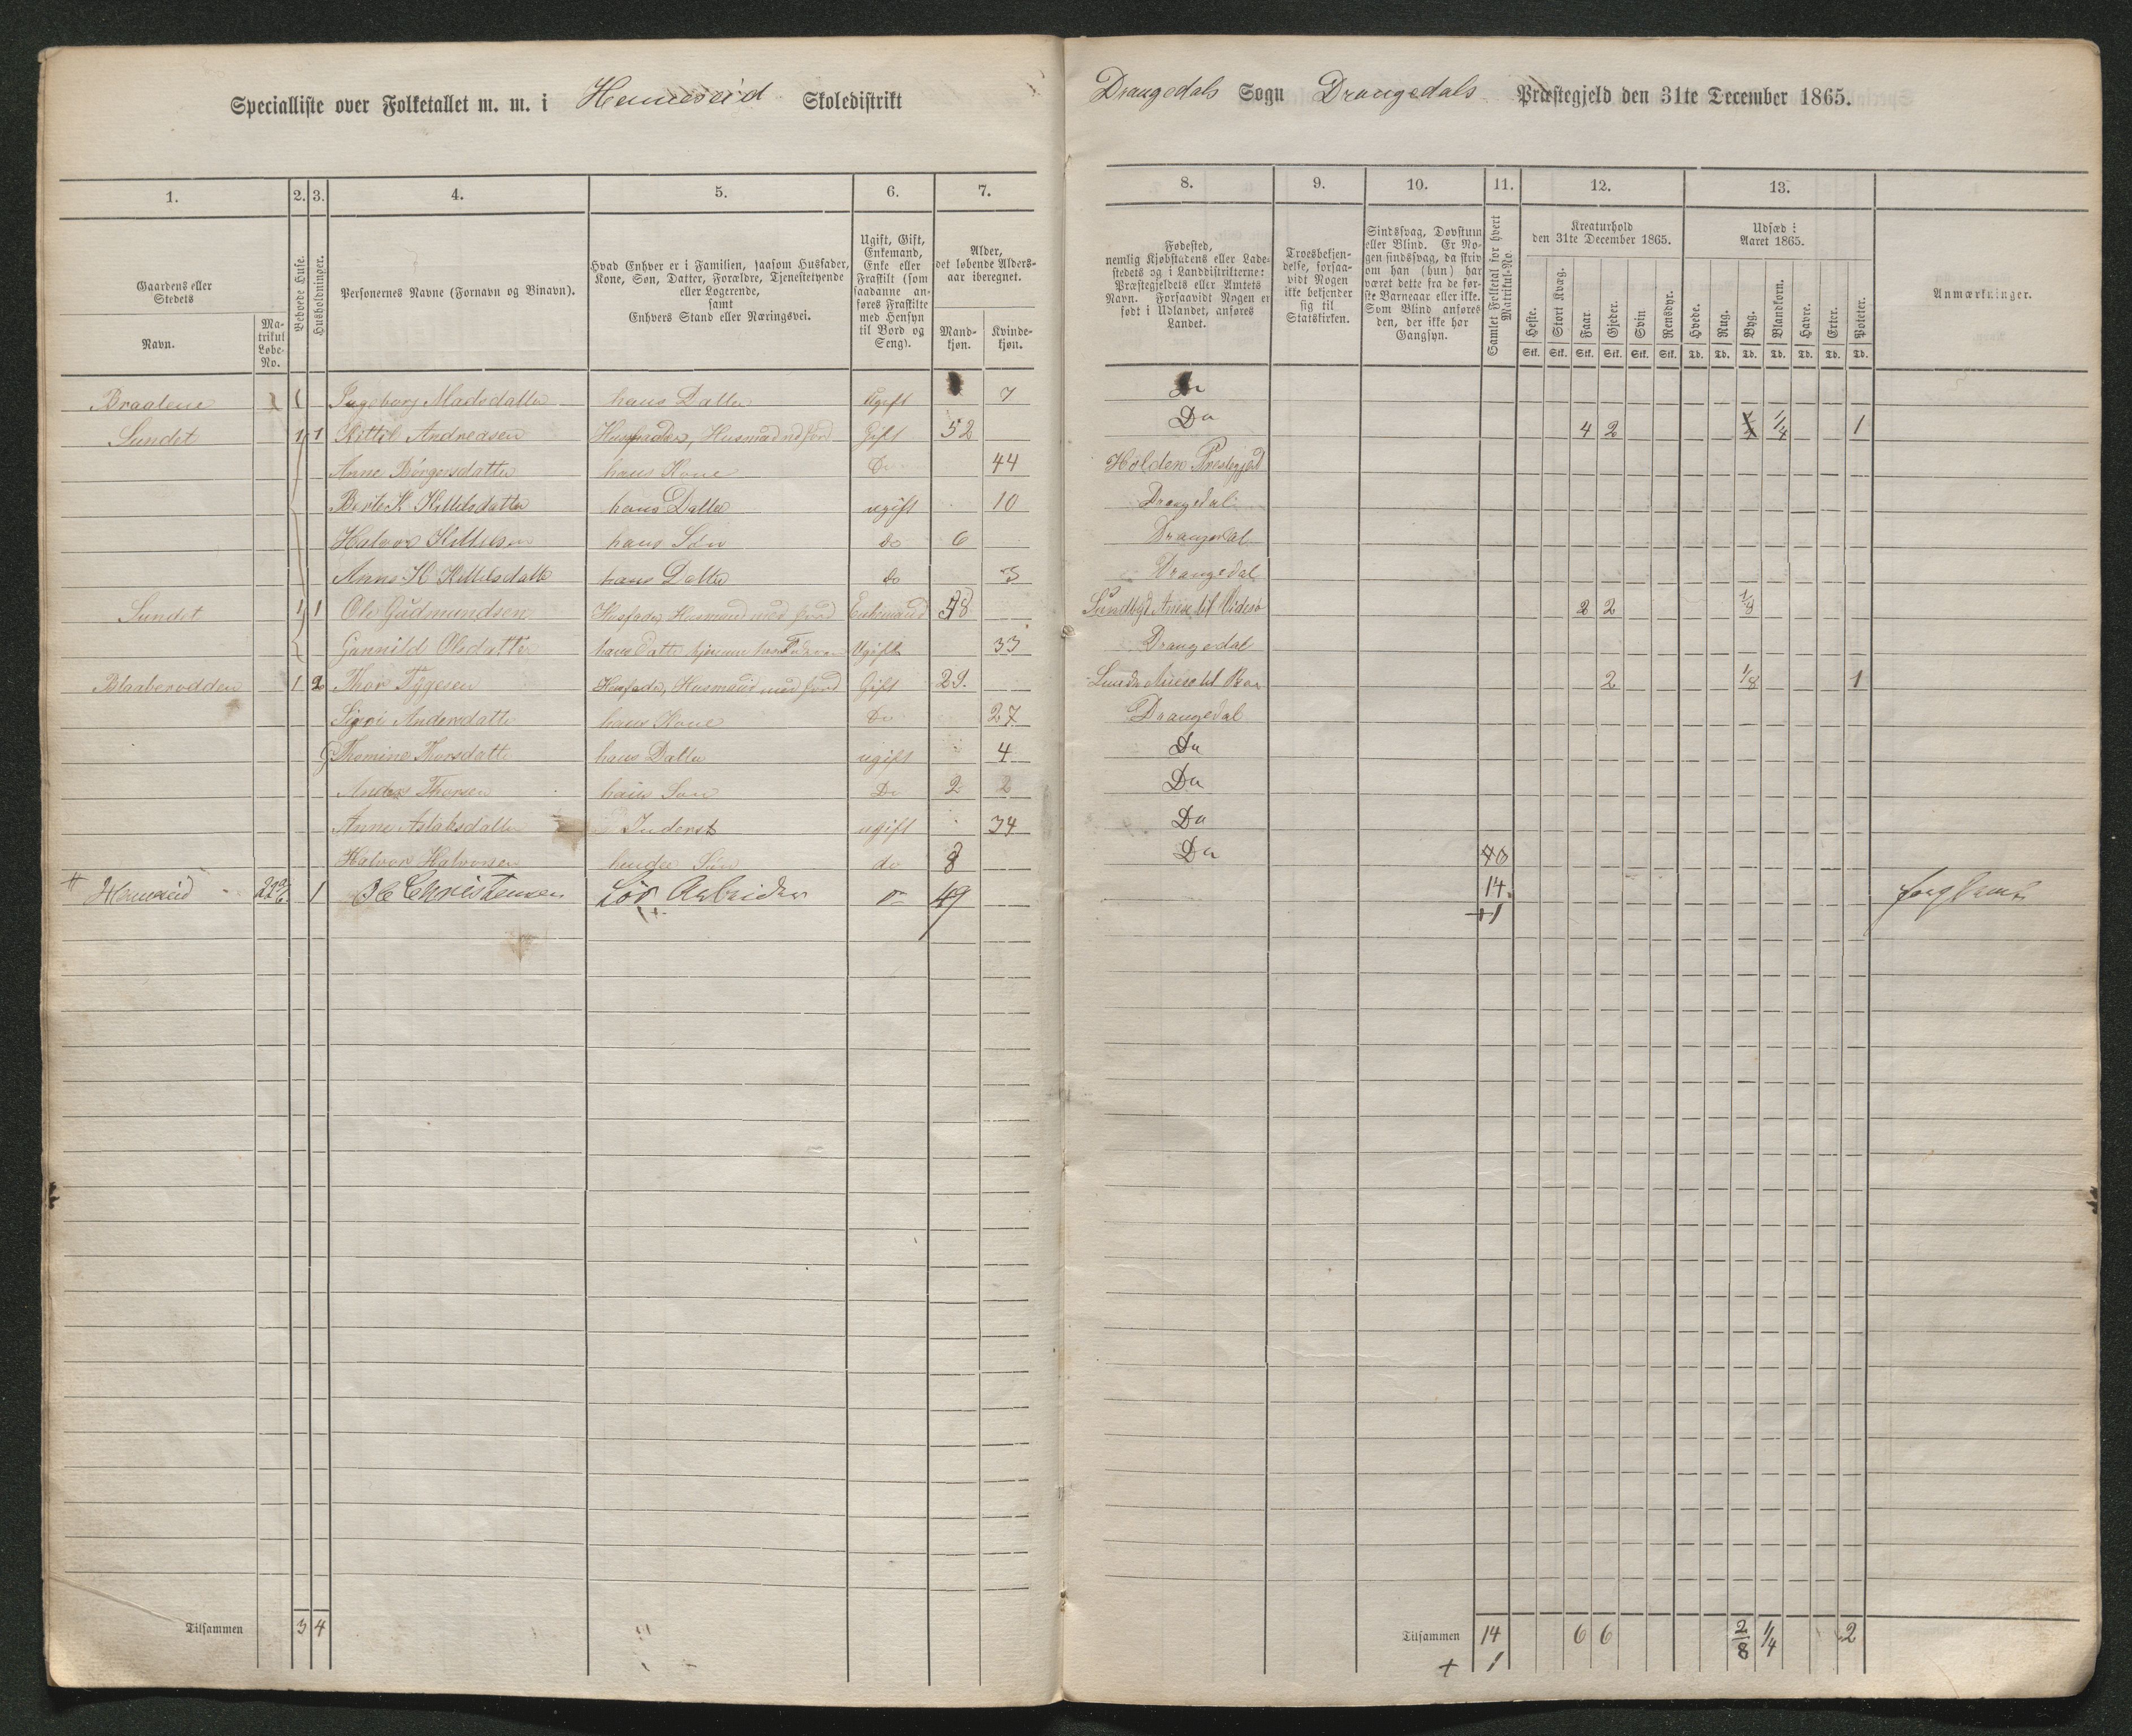 Specialliste over Folketallet m. m. i Henneseid Skoledistrikt
Drangedals Sogn Drangedals Præstegjeld den 31te December 1865.
1. 2. 3. 4. 5. 6. 7. 8. 9. 10. 11. 12. 13.
Gaardens eller Stedets
Navn.
Matrikul Løbe-No.
Beboede Huse.
Husholdninger.
Personernes Navne (Fornavn og Binavn).
Hvad Enhver er i Familien, saasom Husfader, Kone, Søn, Datter, Forældre, Tjenestetyende eller Logerende, samt Enhvers Stand eller Næringsvei.
Ugift, Gift, Enkemand, Enke eller Fraskilt (som saadanne anføres Fraskilte med Hensyn til Bord og Seng).
Alder, det løbende Aldersaar iberegnet.
Mandkjøn.
Kvindekjøn.
Fødested, nemlig Kjøbstadens eller Ladestedets og i Landdistrikterne: Præstegjeldets eller Amtets Navn. Forsaavidt Nogen er født i Udlandet, anføres Landet.
Troesbekjendelse, forsaavidt Nogen ikke bekjender sig til Statskirken.
Sindssvag, Døvstum eller Blind. Er Nogen sindssvag, da skriv om han (hun) har været dette fra de første Barneaar eller ikke. Som Blind anføres den, der ikke har Gangsyn.
Samlet Folketal for hvert Matrikul-No.
Kreaturhold den 31te December 1865.
Heste. Stort Kvæg. Faar. Gjeder. Svin Rensdyr.
Stk. Stk. Stk. Stk. Stk. Stk.
Udsæd i Aaret 1865.
Hvede. Rug. Byg. Blandkorn. Havre. Erter. Poteter.
Td. Td. Td. Td. Td. Td. Td.
Anmærkninger.
Braatene 1 Ingeborg Madsdatter hans Datter Ugift 7 Do
Sundet 1 1 Kittil Andreasen Husfader, Husmand med Jord Gift 52 Do 4 2 1/4 1
Anne Børgersdatter hans Kone Do 44 Holden Prestegjeld
Berte K Kittilsdatter hans Datter ugift 10 Drangedal
Halvor Kittilsen hans Søn do 6 Drangedal
Anne H Kittilsdatter hans Datter do 3 Drangedal
Sundet 1 1 Ole Gudmundsen Husfader Husmand med Jord Enkemand 2 2 1/8
Gunnild Olsdatter hans Datter Ugift 33 Drangedal
Blaaberodden 1 2 Thor Tygesen Husfader, Husmand med Jord Gift 29. Annex til 2 1/8 1
Signi Andersdatter hans Kone Do 27 Drangedal
Thomine Thorsdatter hans Datter ugift 4 Do
Anders Thorsen hans Søn Do 2 Do
Anne Aslaksdatter Inderst ugift 34 Do
Halvor Halvorsen hendes Søn do 8 Do 40
Henneseid 1 Christensen Arbeider 49 14.
+1
Tilsammen 3 4
Tilsammen 14 6 6 2/8 1/4 2
+ 1